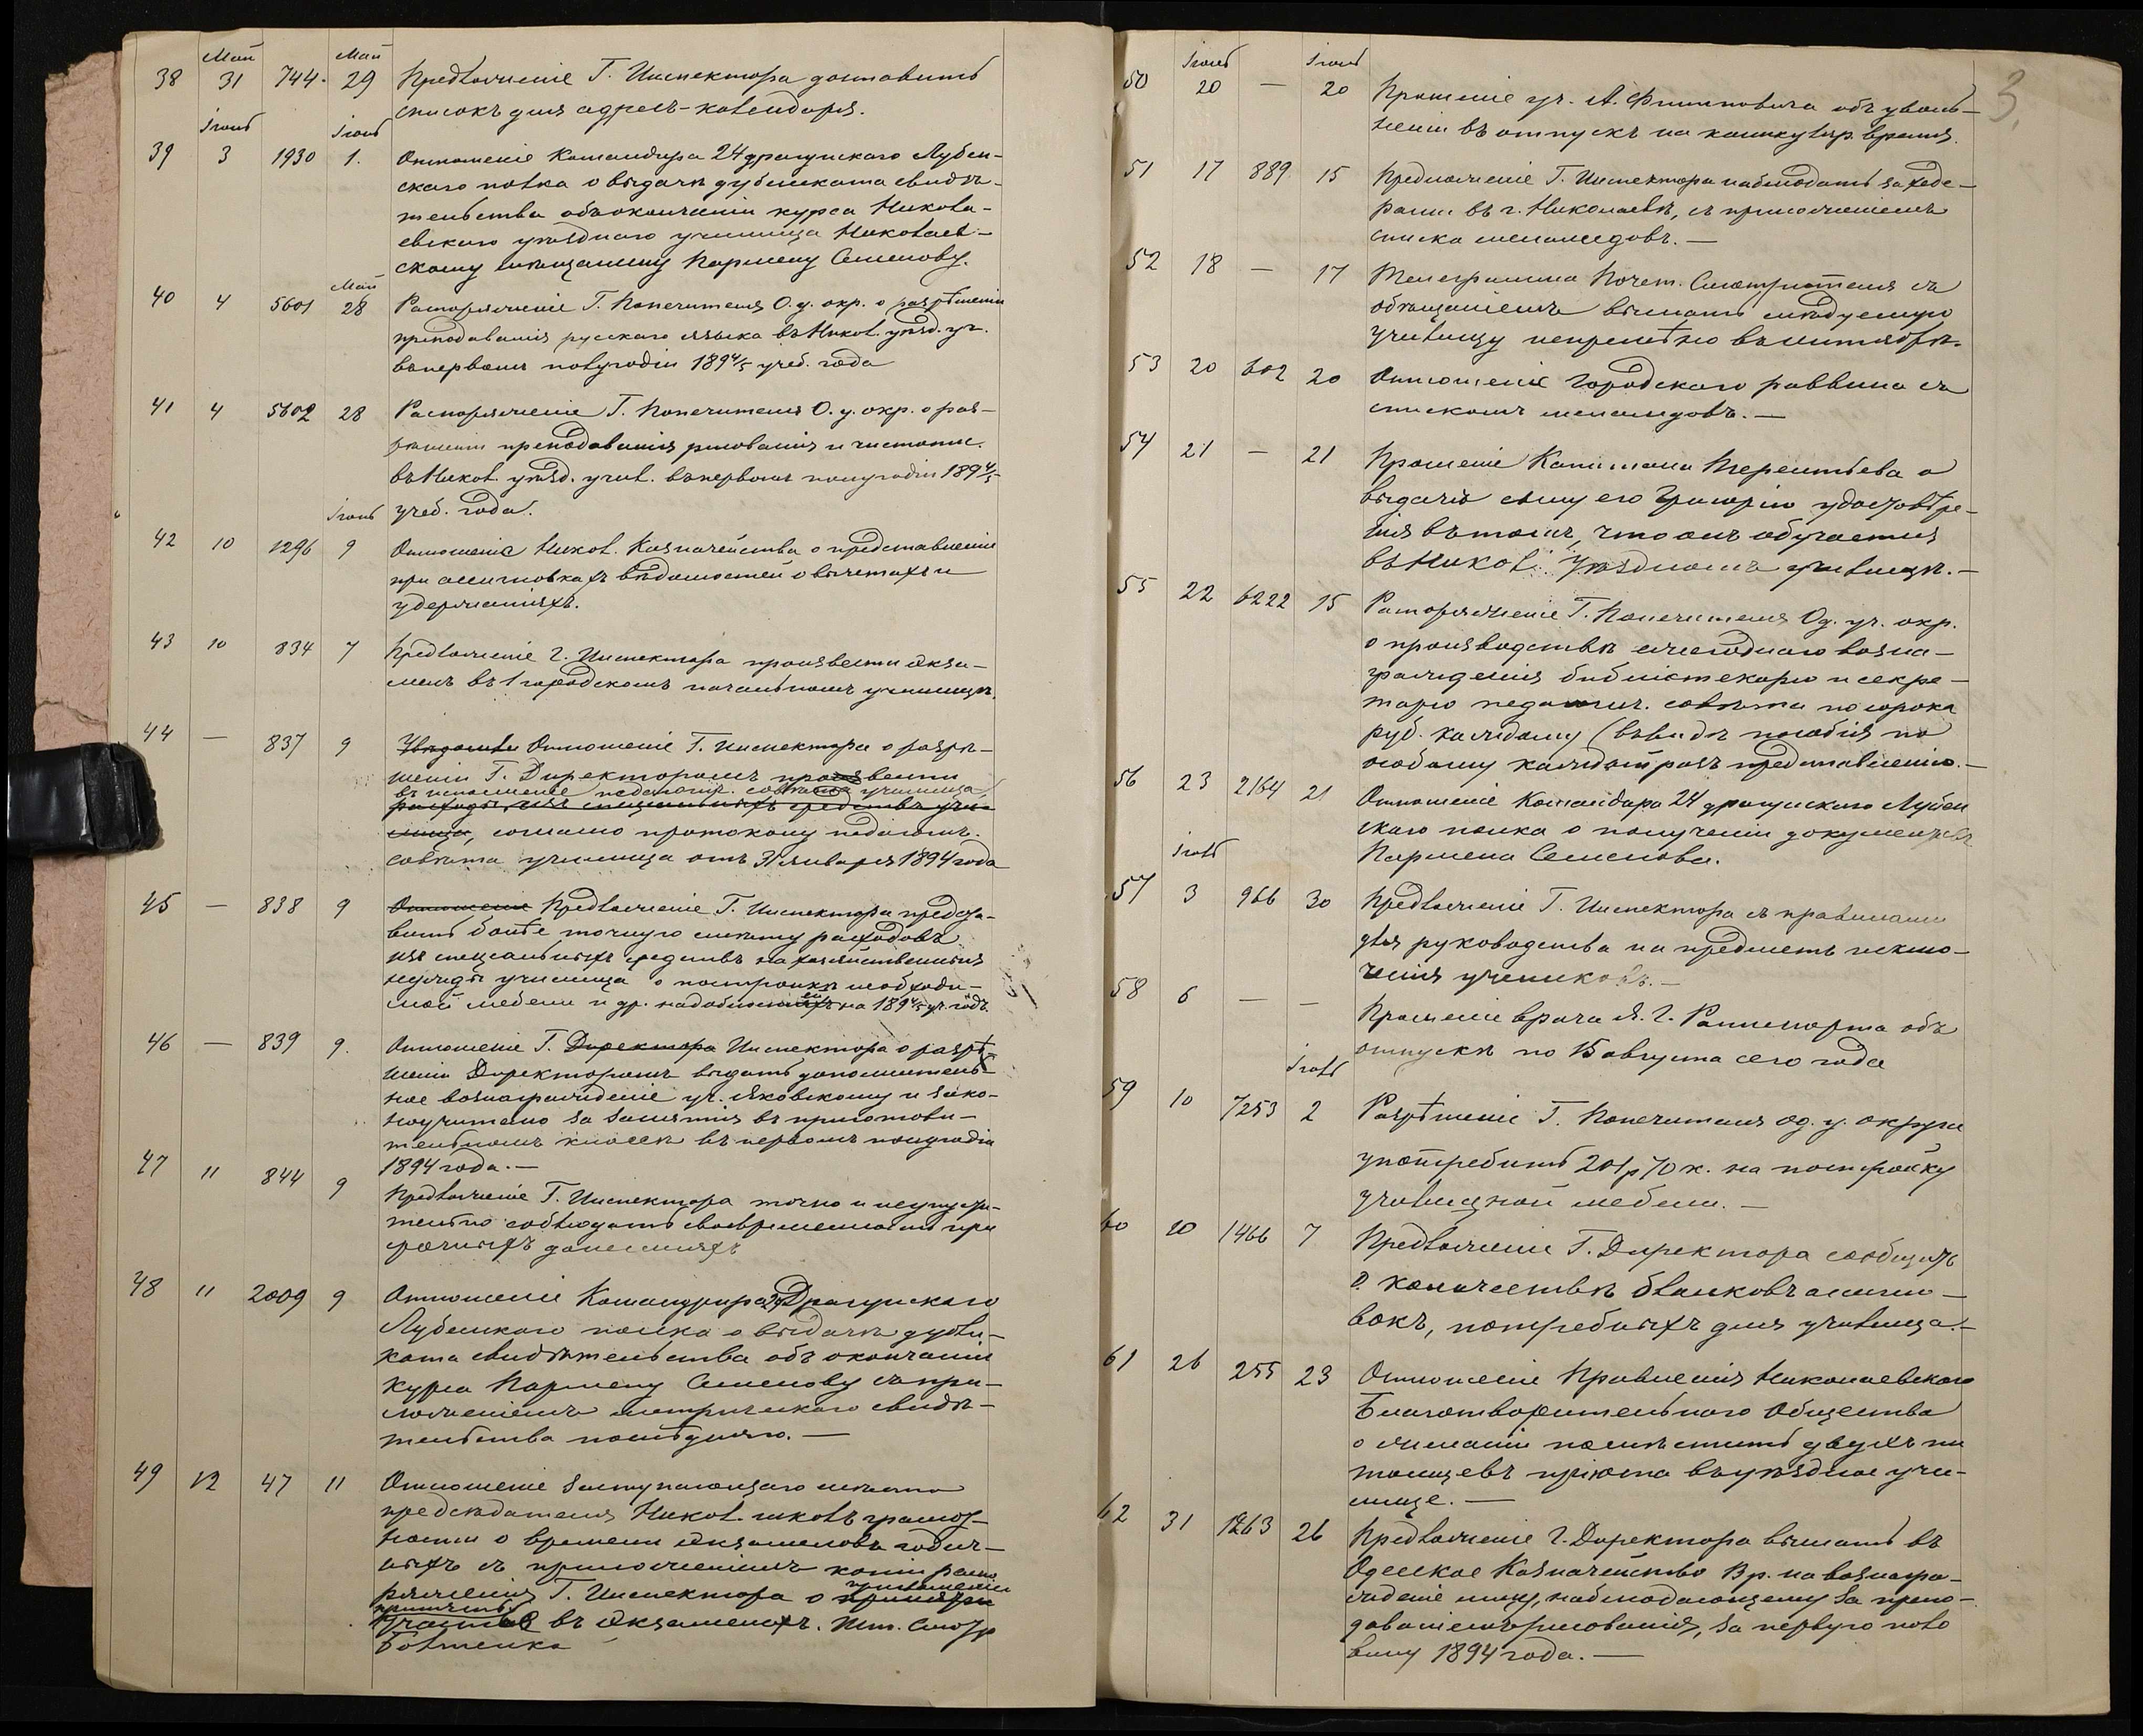 Май Май
38 31 744. 29 Предложеніе Г. Инспектора доставить
списокъ для адресъ-календаря.
Іюнь Іюнь
39 3 1930 1. Отношеніе Командира 24 драгунскаго Лубен-
скаго полка о выдачѣ дубликата свидѣ-
тельства объ окончаніи курса Никола-
евскаго уѣзднаго училища Николаев-
скому мѣщанину Пармену Семенову.
Май
40 4 5601 28 Распоряженіе Г. Попечителя О. у. окр. о разрѣшеніи
преподаванія русскаго языка въ Никол. уѣзд. уч.
въ первомъ полугодіи 1894/5 учеб. года
41 4 5602 28 Распоряженіе Г. Попечителя О. у. окр. о раз-
рѣшеніи преподаванія рисованія и чистопис.
въ Никол. уѣзд. учил. въ первомъ полугодіи 1894/5
учеб. года.
Іюнь
42 10 1296 9 Отношеніе Никол. Казначейства о представленіи
при ассигновкахъ вѣдомостей о вычетахъ и
удержаніяхъ.
43 10 834 7 Предложеніе Г. Инспектора произвести экза-
менъ въ 1 городскомъ начальномъ училищѣ.
44 — 837 9 Отношеніе Г. Инспектора о разрѣ-
шеніи Г. Директоромъ привести
въ исполненіе педагогич. совѣта училища,
расходы изъ спеціальныхъ средствъ учи-
лища, согласно протоколу педагогич.
совѣта училища отъ 31 января 1894 года
45 — 838 9 Отношеніе Предложеніе Г. Инспектора предста-
вить болѣе точную смѣту расходовъ
изъ спеціальныхъ средствъ на хозяйственныя
нужды училища о постройкѣ необходи-
мой мебели и др. надобностей на 1894/5 уч. годъ.
46 — 839 9. Отношеніе Г. Директора Инспектора о разрѣ-
шеніи Директоромъ выдать дополнитель-
ное вознагражденіе уч. Яковскому и зако-
ноучителю за занятія въ приготови-
тельномъ классѣ въ первомъ полугодіи
1894 года. —
47 11 844 9
Предложеніе Г. Инспектора точно и неупусти-
тельно соблюдать своевременность при
срочныхъ донесеніяхъ
48 11 2009 9 Отношеніе Командира 24 Драгунскаго
Лубенскаго полка о выдачѣ дубли-
ката свидѣтельства объ окончаніи
курса Пармену Семенову съ при-
ложеніемъ метрическаго свидѣ-
тельства послѣдняго. —
49 12 47 11 Отношеніе Заступающаго мѣсто
предсѣдателя Никол. школъ грамот-
ности о времени экзаменовъ годич-
ныхъ съ приложеніемъ копіи распо
ряженія Г. Инспектора о приглашеніи
принять
участіе въ экзаменахъ. Шт. Смотр
Бовтенка
3.
Іюнь Іюнь
50 20 — 20 Прошеніе уч. А. Филиповича объ уволь-
неніи въ отпускъ на каникуляр. время.
51 17 889 15 Предложеніе Г. Инспектора наблюдать за хеде-
рами въ г. Николаевѣ, съ приложеніемъ
списка меламедовъ. —
52 18 — 17 Телеграмма Почет. Смотрителя съ
обѣщаніемъ выслать слѣдуемую
училищу непремѣнно въ сентябрѣ.
53 20 602 20 Отношеніе Городского раввина съ
спискомъ меламедовъ. —
54 21 — 21 Прошеніе Капитана Терентьева о
выдачѣ сыну его Григорію удостовѣре-
нія въ томъ, что онъ обучается
въ Никол. Уѣздномъ училищѣ. —
55 22 6222 15 Распоряженіе Г. Попечителя Од. уч. окр.
о производствѣ ежегоднаго возна-
гражденія библіотекарю и секре-
тарю педагогич. совѣта по сорока
руб. каждому (въ видѣ пособія по
особому каждый разъ представленію. —
56 23 2164 21 Отношеніе Командира 24 драгунскаго Лубен
скаго полка о полученіи документовъ
Пармена Семенова.
Іюль
57 3 966 30 Предложеніе Г. Инспектора съ правилами
для руководства на предметъ исклю-
ченія учениковъ. —
58 6 — — Прошеніе врача Я. Г. Раппопорта объ
отпускѣ по 15 августа сего года
Іюль
59 10 7253 2 Разрѣшеніе Г. Попечителя Од. у. округа
употребить 201 р 70 к. на постройку
училищной мебели. —
60 10 1466 7 Предложеніе Г. Директора сообщить
о количествѣ бланковъ ассигно-
вокъ, потребныхъ для училища. —
61 26 255 23 Отношеніе Правленія Николаевскаго
Благотворительнаго Общества
о желаніи помѣстить двухъ пи
томцевъ пріюта въ уѣздное учи-
лище. —
62 31 1263 26 Предложеніе Г. Директора выслать въ
Одесское Казначейство 3 р. на вознагра-
жденіе лицу, наблюдающему за препо-
даваніемъ рисованія, за первую поло
вину 1894 года. —